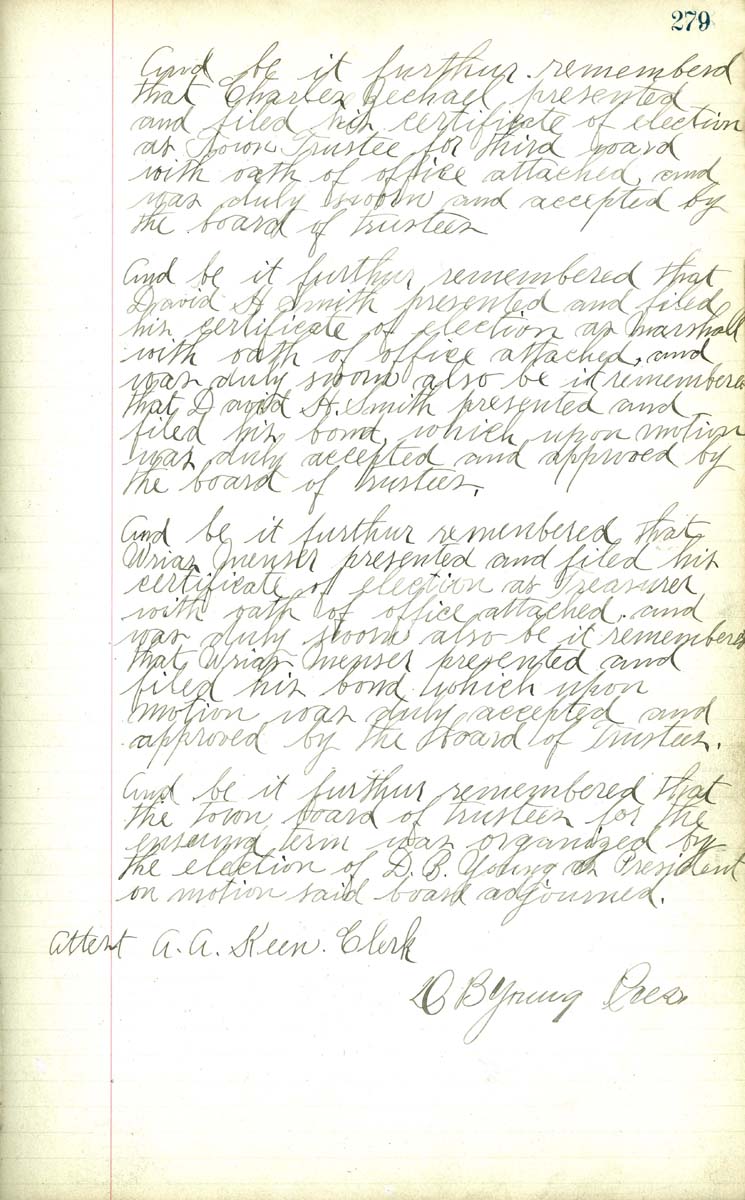 279
And be it furthur. rememberd
that Charles Zechael presented
and filed his certificate of election
as Town Trustee for third ward
with oath of office attached and
was duly sworn and accepted by
the board of trustees
And be it furthur remembered that
David H Smith presented and filed
his certificate of election as Marshall
with oath of office attached, and
was duly sworn also be it remembered
that David H. Smith presented and
filed his bond, which upon motion
was duly accepted and approved by
the board of trustees.
And be it furthur remembered that
Urias Menser presented and filed his
certificate of election as Treasurer
with oath of office attached. and
was duly sworn also be it remembered
that Urias Menser presented and
filed his bond which upon
motion was duly accepted and
approved by the board of Trustees.
And be it furthur remembered that
the town board of trustees for the
ensuing term was organized by
the election of D. B. Young as President
on motion said board adjourned.
Attest A. A. Keen. Clerk
D B Young Pres